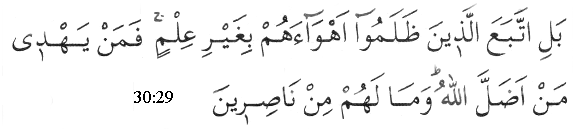 بَلِ اتَّبَعَ الَّذ۪ينَ ظَلَمُٓوا اَهْوَٓاءَهُمْ بِغَيْرِ عِلْمٍۚ فَمَنْ يَهْد۪ي
مَنْ اَضَلَّ اللّٰهُۜ وَمَا لَهُمْ مِنْ نَاصِر۪ينَ
30:29